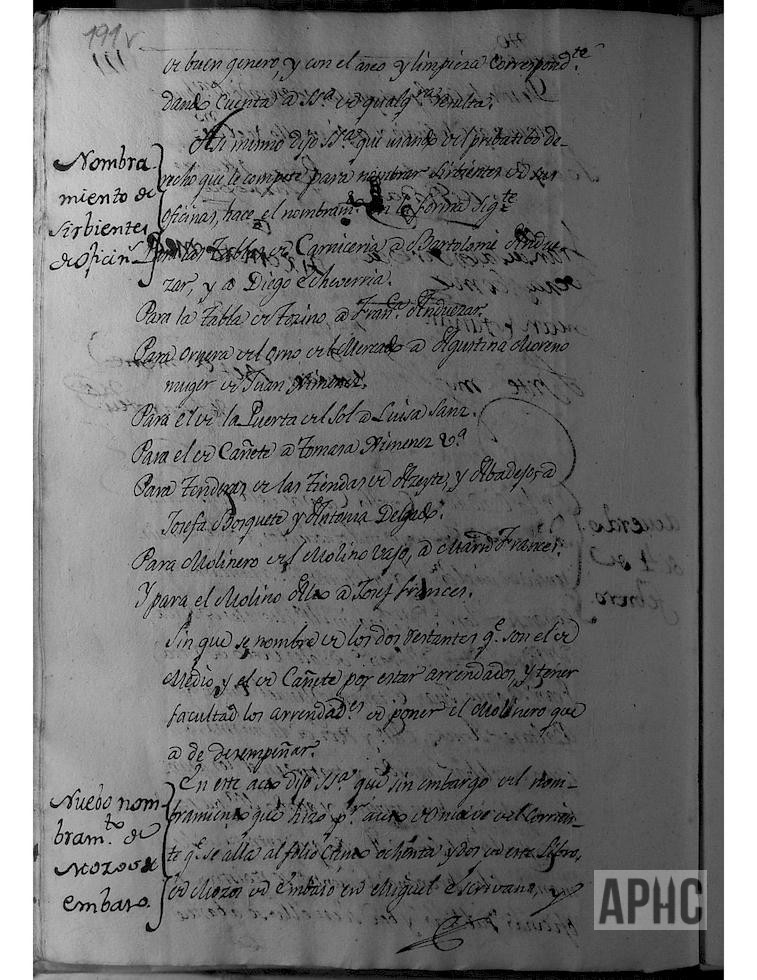 191v
de buen genero, y con el aseo y limpieza Correspond.te
dando Cuenta a SSa de qualq.ra resulta.
Asi mismo dijo SSa que usando del pribatibo de-
recho que le compete para nombrar Sirbientes de sus
oficinas, hace el nombram.to en la forma sig.te
Nombra
miento de
Sirbientes
de oficin.s
Para las Tablas de Carniceria a Bartolome Andue
zar, y a Diego Echeverria.
Para la Tabla de Tozino a Fran.ca Anduezar.
Para ornera del orno del Mercado a Agustina Moreno
muger de Juan Ximenez.
Para el de la Puerta del Sol a Luisa Sanz.
Para el de Cañete a Tomasa Ximenez v.a
Para Tenderas de las Tiendas de Azeyte, y Abadejo, a
Josefa Borquete y Antonia Delgado.
Para Molinero del Molino vajo, a Mariano Frances.
Y para el Molino Alto a Josef Frances.
Sin que se nombre de los dos restantes q.e son el de
Medio, y el de Cañete por estar arrendados, y tener
facultad los arrendad.es de poner el Molinero que
a de desempeñar.
En este acto dijo SSa que sin embargo del nom-
bramiento que hizo p.r auto de nueve del Corrien-
te q.e se alla al folio Ciento ochenta y dos de este Libro,
de Mozos de embaso en Miguel Escrivano, y
Nuebo nom
bram.to de
Mozos de
embaso.
APHC